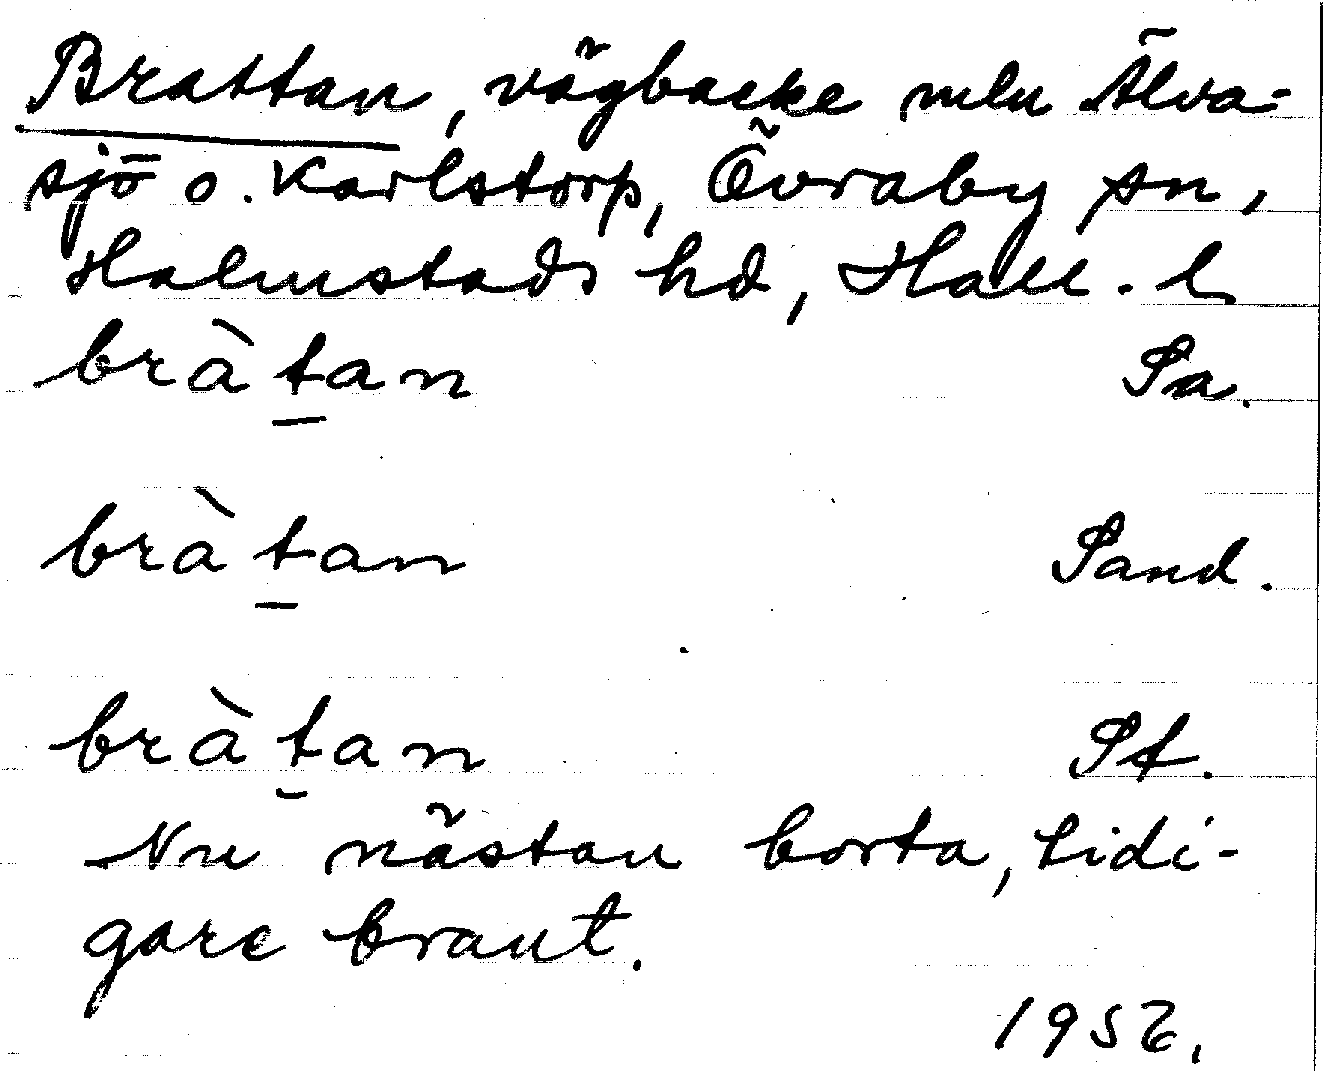 Brattan, vägbacke mln Älva-
sjö o. Karlstorp, Övraby sn,
Halmstads hd, Hall. l.
bràt̲an Sa.
bràt̲an Sand.
bràt̲an St.
Nu nästan borta, tidi-
gare brant.
1956.